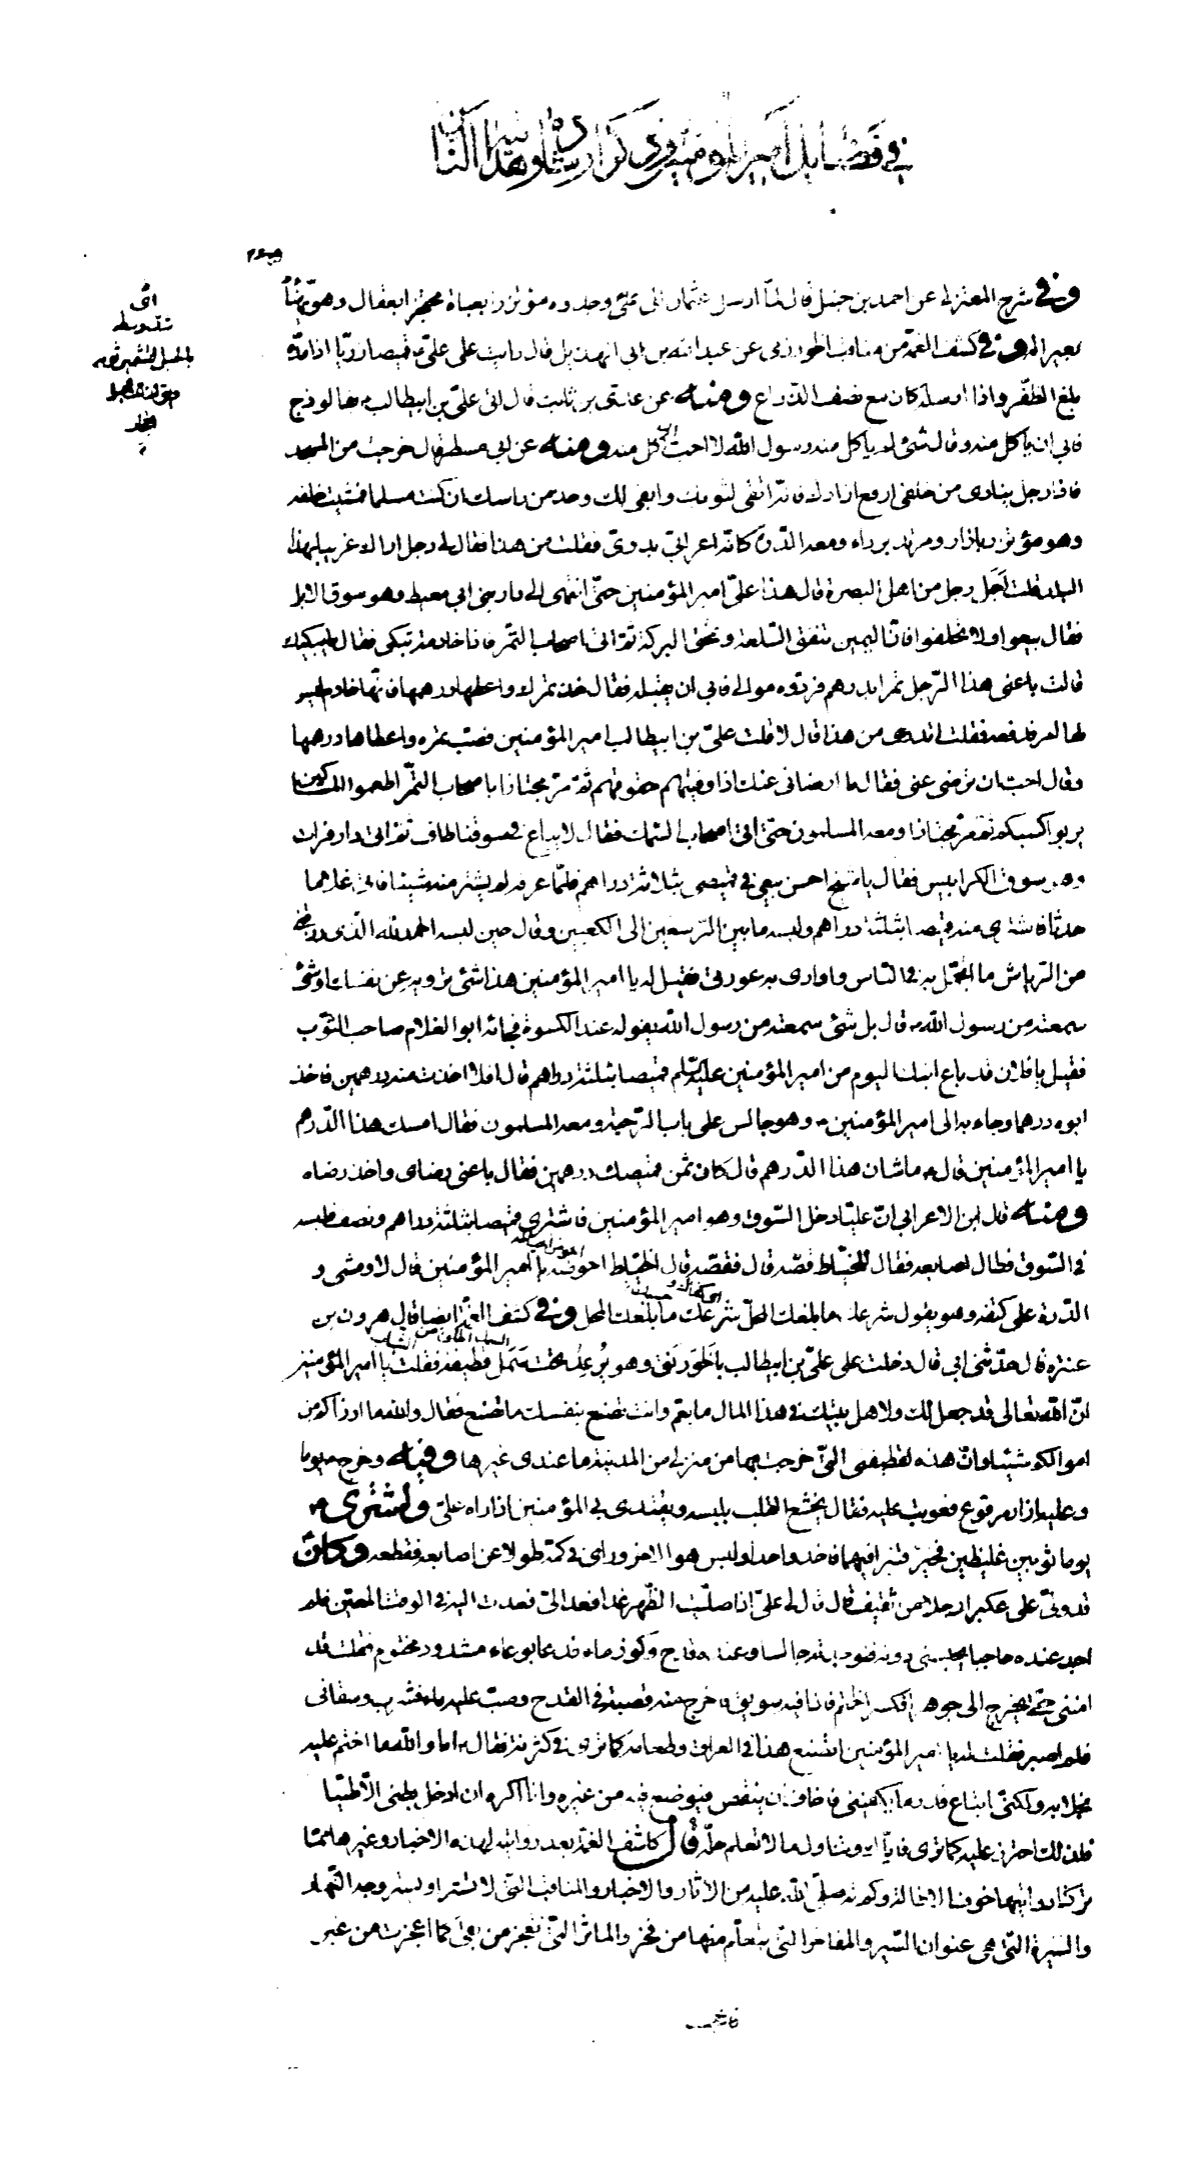 في فضايل أمير المؤمنين وذكر زهده
وفي شرح المعتزلي عن احمد بن حنبل قال لما ارسل عثمان الى علي وجدوه مؤتزرا بعباة محتجزا بعقال وهو يهنأ
بعيرا له وفي كشف الغمة من مناقب الخوارزمي عن عبد الله بن ابي الهذيل قال رايت على علي قميصا رزيا اذا مده
بلغ الظفر واذا ارسله كان مع نصف الذراع ومنه عن عدي بن ثابت قال اتى علي بن ابيطالب بفالوذج
فابى ان ياكل منه وقال شئ لم ياكل منه رسول الله لا احب ان اكل منه ومنه عن ابي مطر قال خرجت من المسجد
فاذا رجل ينادي من خلفي ارفع ازارك فانه اتقى لثوبك وابقى لك وخذ من راسك ان كنت مسلما فمشيت خلفه
وهو مؤتزر بازار ومرتد برداء ومعه الدرة كانه اعرابي بدوي فقلت من هذا فقال لي رجل اراك غريبا بهذا
البلد قلت اجل رجل من اهل البصرة قال هذا علي امير المؤمنين حتى انتهى الى دار بني ابي معيط وهو سوق الابل
فقال بيعوا ولا تحلفوا فان اليمين تنفق السلعة وتمحق البركة ثم اتى اصحاب التمر فاذا خادمة تبكي فقال ما يبكيك
قالت باعني هذا الرجل تمرا بدرهم فردوه موالي فابى ان يقبله فقال خذ تمرك واعطها درهمها فانها خادم ليس
لها امر فدفعه فقلت اتدري من هذا قال لا قلت علي بن ابيطالب امير المؤمنين فصب تمره واعطاها درهمها
وقال احب ان ترضى عني فقال ما ارضاني عنك اذا وفيتهم حقوقهم ثم مر مجتازا باصحاب التمر اطعموا المساكين
يربو كسبكم ثم مر مجتازا ومعه المسلمون حتى اتى اصحاب السمك فقال لا يباع في سوقنا طاف ثم اتى دار فرات
وهو سوق الكرابيس فقال يا شيخ احسن بيعي في قميصي بثلاثة دراهم فلما عرفه لم يشتر منه شيئا فاتى غلاما
حدثا فاشترى منه قميصا بثلثة دراهم ولبسه ما بين الرسغين الى الكعبين وقال حين لبسه الحمد لله الذي رزقني
من الرياش ما اتجمل به في الناس واواري به عورتي فقيل له يا امير المؤمنين هذا شئ ترويه عن نفسك او شئ
سمعته من رسول الله قال بل شئ سمعته من رسول الله يقوله عند الكسوة فجاء ابو الغلام صاحب الثوب
فقيل يا فلان قد باع ابنك اليوم من امير المؤمنين عليه السلم قميصا بثلثة دراهم قال افلا اخذت منه درهمين فاخذ
ابوه درهما وجاء به الى امير المؤمنين وهو جالس على باب الرحبة ومعه المسلمون فقال امسك هذا الدرهم
يا امير المؤمنين قال ما شان هذا الدرهم قال كان ثمن قميصك درهمين فقال باعني رضاي واخذ رضاه
ومنه قال ابن الاعرابي ان عليا دخل السوق وهو امير المؤمنين فاشترى قميصا بثلثة دراهم ونصف فلبسه
في السوق فطال اصابعه فقال للخياط قصه قال فقصه قال الخياط احوصه يا امير المؤمنين قال لا ومشى و
الدرة على كتفه وهو يقول شرعك ما بلغك المحل شرعك ما بلغك المحل وفي كشف الغمة ايضا قال هرون بن
عنترة قال حدثني ابي قال دخلت على علي بن ابيطالب بالخورنق وهو يرعد تحت سمل قطيفة فقلت يا امير المؤمنين
ان الله تعالى قد جعل لك ولاهل بيتك في هذا المال ما يعم وانت تصنع بنفسك ما تصنع فقال والله ما ارزاكم من
اموالكم شيئا وان هذه لقطيفتي التي خرجت بها من منزلي من المدينة ما عندي غيرها وفيه وخرج يوما
وعليه ازار مرقوع فعوتب عليه فقال يخشع القلب بلبسه ويقتدي بي المؤمنين اذا راه علي واشترى
يوما ثوبين غليظين فخير قنبرا فيهما فاخذ واحدا ولبس هو الاخر وراى في كمه طولا عن اصابعه فقطعه وكان
قد ولى على عكبرا رجلا من ثقيف قال قال لي علي اذا صليت الظهر غدا فعد الي فعدت اليه في الوقت المعين فلم
اجد عنده حاجبا يحبسني دونه فوجدته جالسا وعنده قدح وكوز ماء فدعا بوعاء مشدود مختوم فقلت قد
امنني حتى يخرج الي جوهرا فكسر الختم فاذا فيه سويق فاخرج منه فصبه في القدح وصب عليه ماء فشرب وسقاني
فلم اصبر فقلت له يا امير المؤمنين اتصنع هذا في العراق وطعامه كما ترى في كثرته فقال اما والله ما اختم عليه
بخلا به ولكني ابتاع قدر ما يكفيني فاخاف ان ينقص فيوضع فيه من غيره وانا اكره ان ادخل بطني الا طيبا
فلذلك احترز عليه كما ترى فاياك وتناول ما لا تعلم حله قال كاشف الغمة بعد روايته لهذه الاخبار وغيرها مما
والسيرة التي هي عنوان السير والمفاخر التي يتعلم منها من فخر والماثر التي تعجز من بقي كما اعجزت من غبر